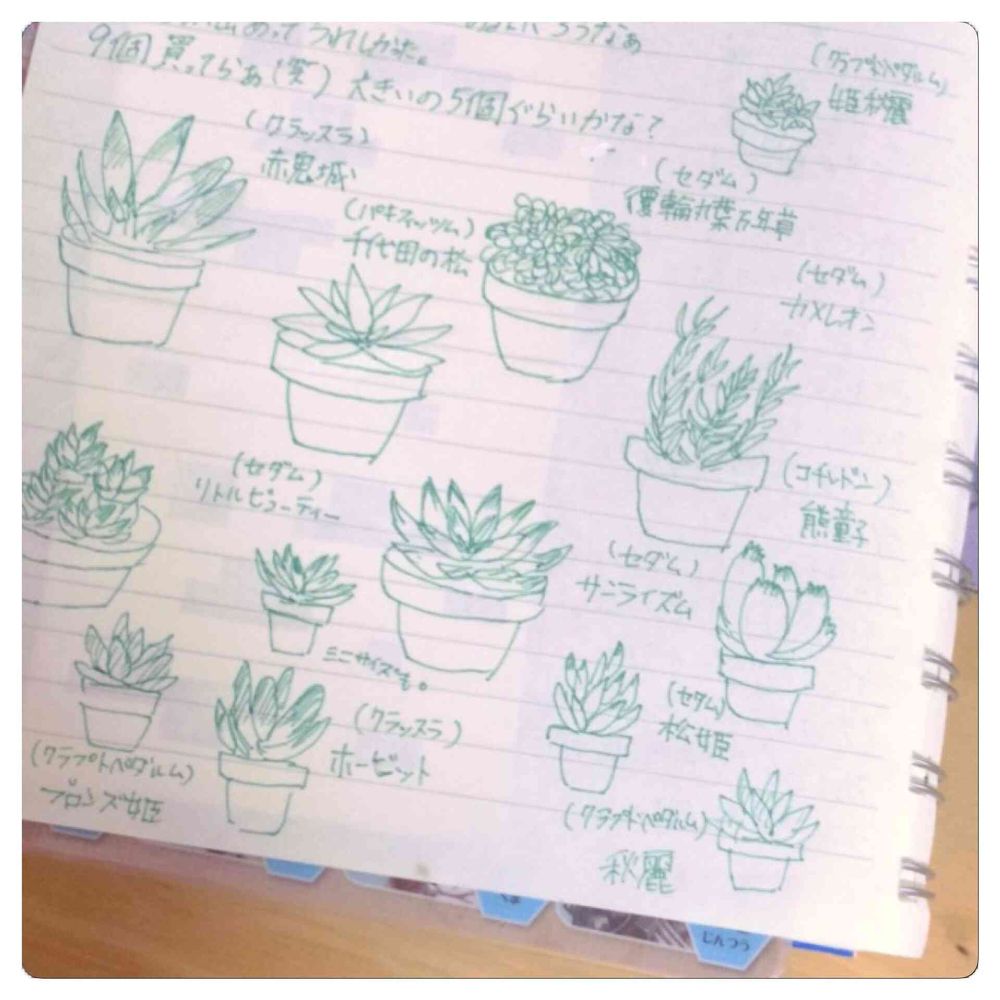 あってうれしかった。
9個買ってらぁ(笑) 大きいの5個ぐらいかな?
(グラプトペダルム)
姫秋麗
(クラッスラ)
赤鬼城
(セダム)
覆輪丸葉万年草
(パキフィッツム)
千代田の松
(セダム)
カメレオン
(セダム)
リトルビューティー
(コチレドン)
熊童子
(セダム)
サンライズム
ミニサイズも。
(セダム)
松姫
(クラッスラ)
ホービット
(グラプトペダルム)
ブロンズ姫
(グラプトペダルム)
秋麗
じんつう